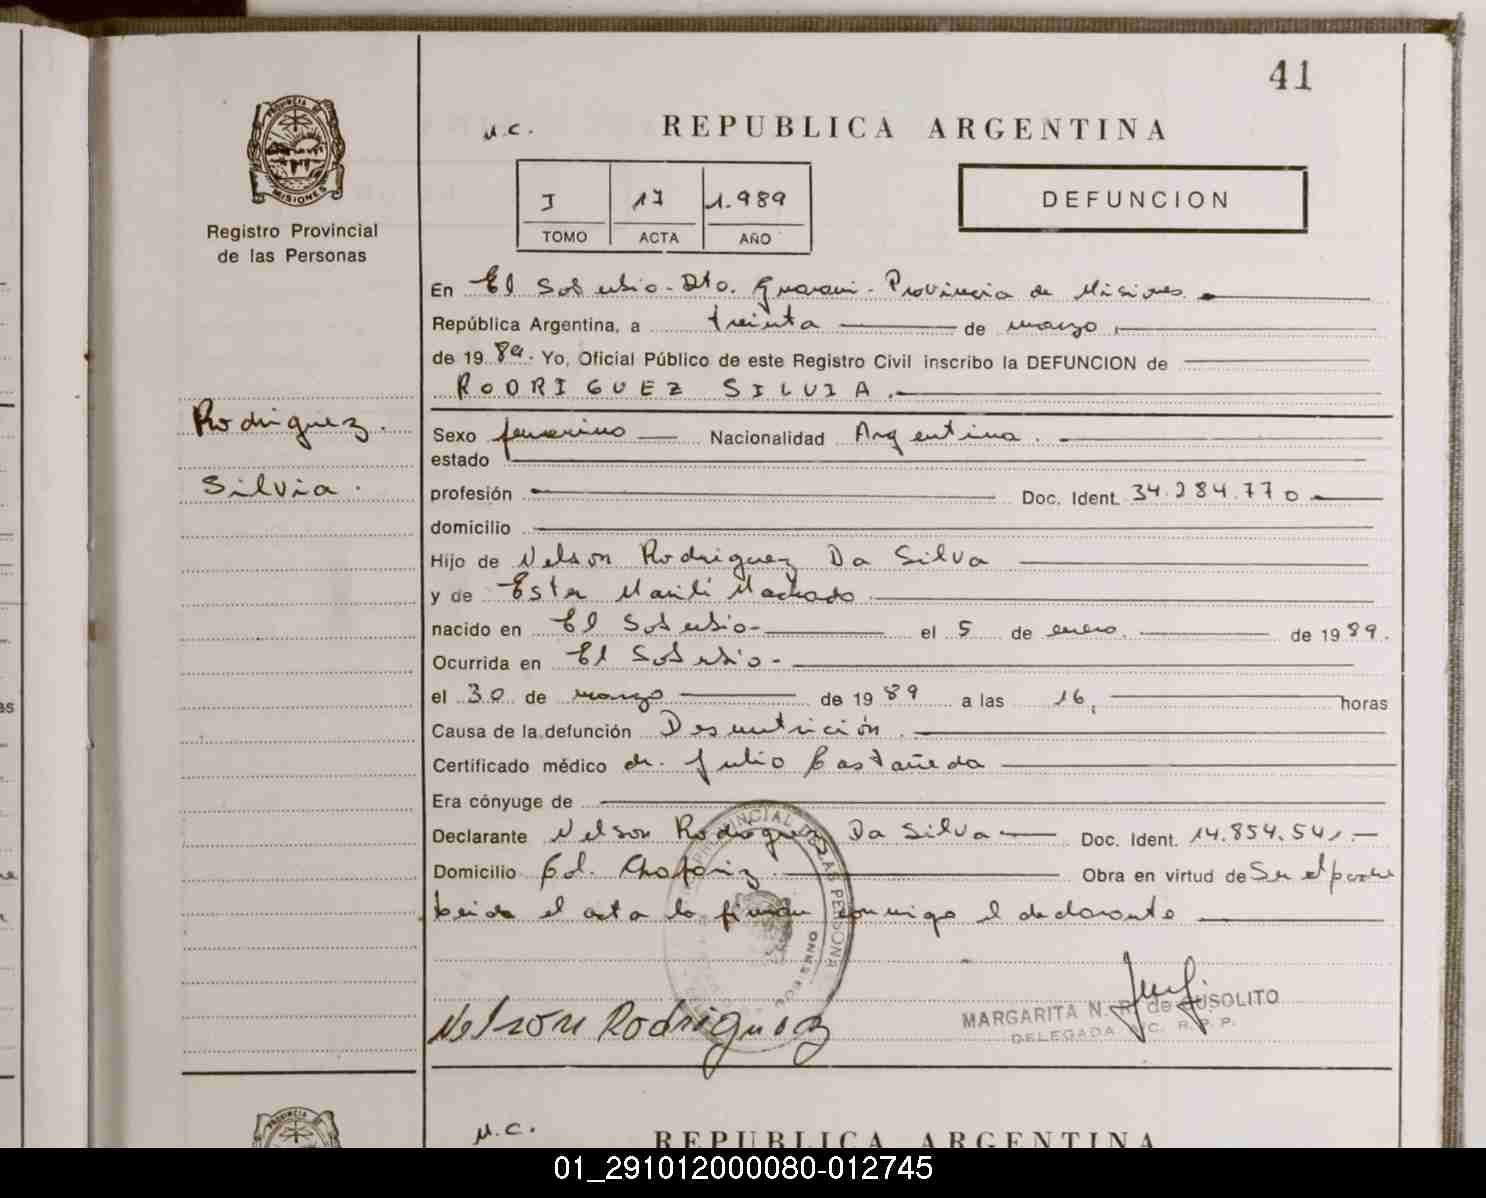 41
PROVINCIA DE
MISIONES
Registro Provincial
de las Personas
M.C.
REPUBLICA ARGENTINA
I 17 1.989
TOMO ACTA AÑO
DEFUNCION
En El Soberbio - Dto. Guarani - Provincia de Misiones.
República Argentina, a treinta de marzo
de 1989. Yo, Oficial Público de este Registro Civil inscribo la DEFUNCION de
RODRIGUEZ SILVIA.
Rodriguez.
Silvia.
Sexo femenino Nacionalidad Argentina.
estado
profesión Doc. Ident. 34.284.770
domicilio
Hijo de Nelson Rodriguez Da Silva
y de Ester Marili Machado
nacido en El Soberbio- el 5 de enero de 1989.
Ocurrida en El Soberbio-
el 30 de marzo de 1989 a las 16, horas
Causa de la defunción Desnutrición.
Certificado médico dr. Julio Castañeda
Era cónyuge de
Declarante Nelson Rodriguez Da Silva Doc. Ident. 14.854.541.-
Domicilio Col. Chafariz Obra en virtud de Ser el padre
leida el acta la firman conmigo el declarante
PROVINCIAL DE LAS PERSONA
Nelson Rodriguez
MARGARITA N. R. de CUSOLITO
DELEGADA R. P. P.
M.C.
REPUBLICA ARGENTINA
01_291012000080-012745